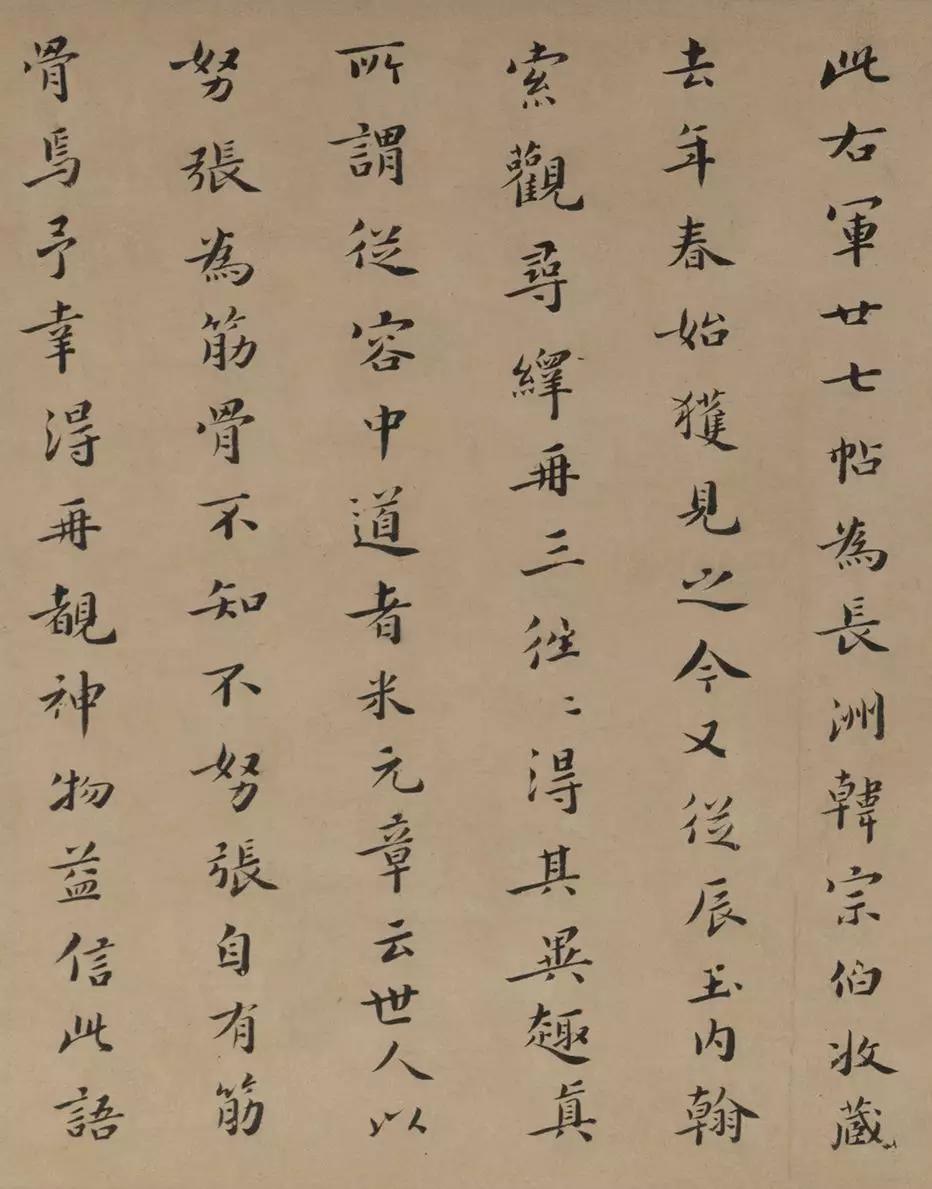 此右軍廿七帖為長洲韓宗伯收蔵
去年春始獲見之今又從辰玉内翰
索觀尋繹再三徃〻得其異趣真
所謂從容中道者米元章云世人以
努張為筋骨不知不努張自有筋
骨焉予幸得再覩神物益信此語